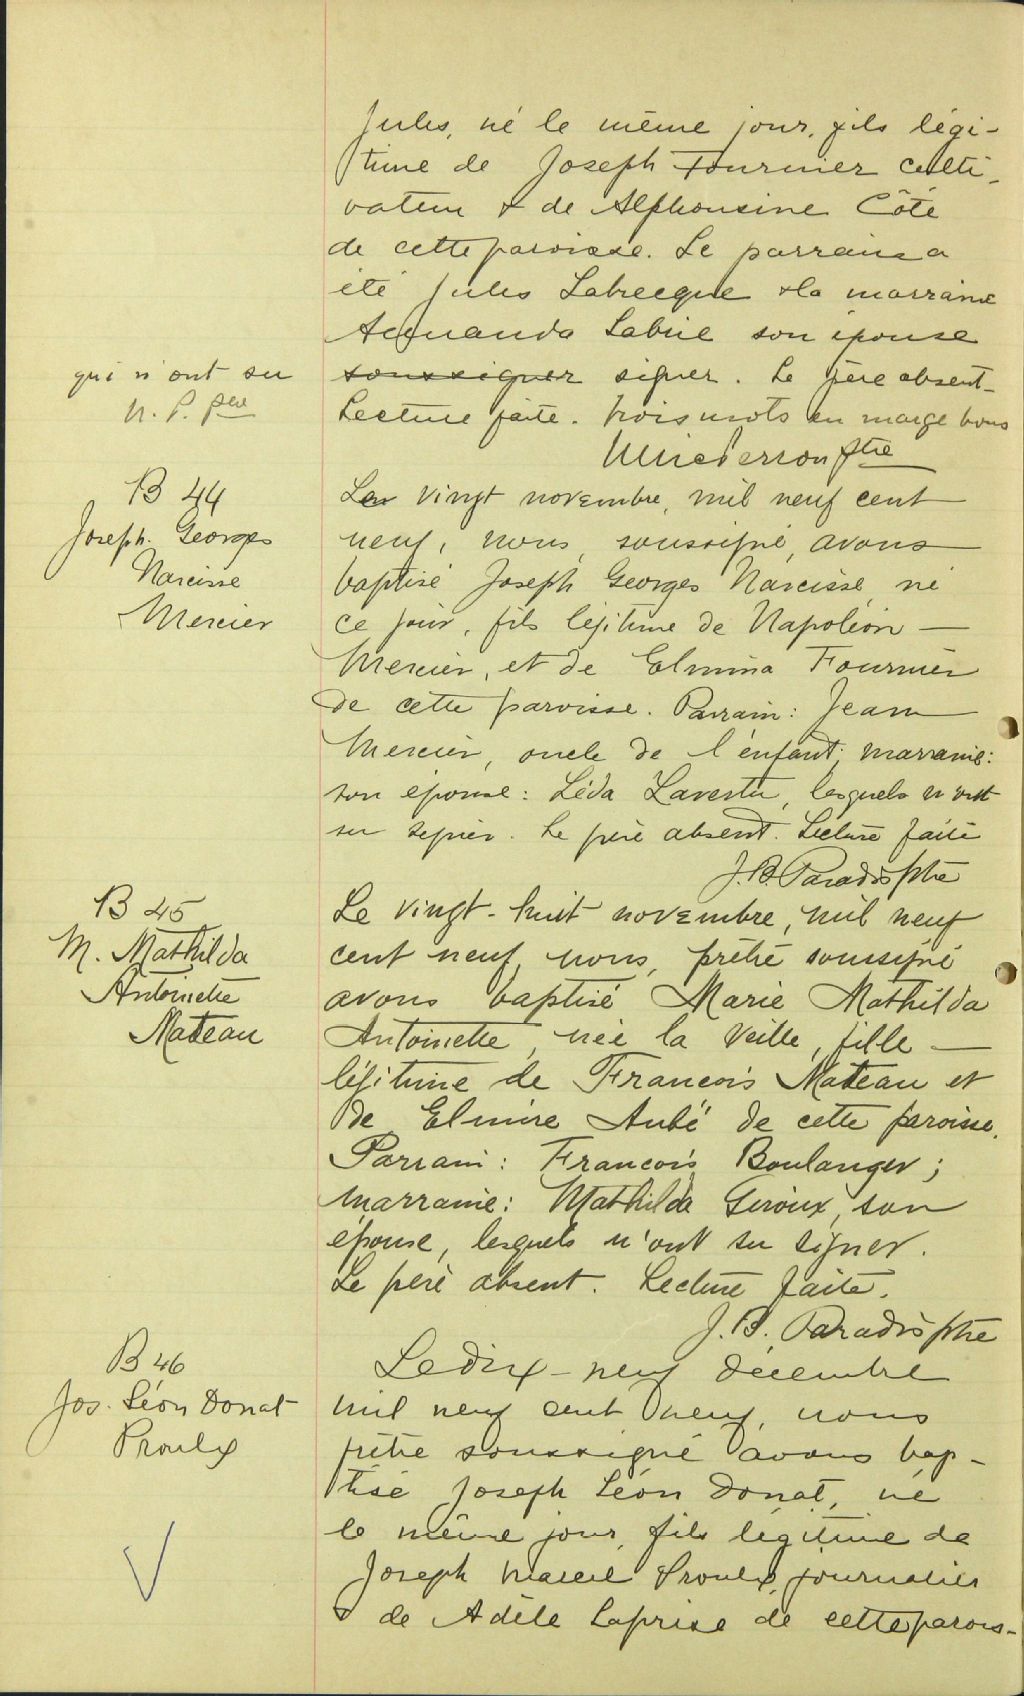 Jules, né le même jour, fils légi-
time de Joseph Fournier culti-
vateur & de Alphonsine Côté
de cette paroisse. Le parrain a
été Jules Labrecque & la marraine
Labrie son épouse
qui n'ont su
soussigner signer. Le père absent.
Lecture faite. trois mots en marge bons
ptre
B 44
Joseph. Georges
Narcisse
Mercier
Le vingt novembre, mil neuf cent
neuf, nous, soussigné, avons
baptisé Joseph Georges Narcisse, né
ce jour, fils légitime de Napoléon —
Mercier, et de Elmina Fournier
de cette paroisse. Parrain: Jean
Mercier, oncle de l'enfant; marraine:
son épouse: Léda Lavertu, lesquels n'ont
su signer. Le père absent. Lecture faite
J. B. Paradis ptre
B 45
M. Mathilda
Antoinette
Nadeau
Le vingt-huit novembre, mil neuf
cent neuf, nous, prêtre soussigné
avons baptisé Marie Mathilda
Antoinette, née la veille, fille —
légitime de François Nadeau et
de Elmire Aubé de cette paroisse.
Parrain: François Boulanger;
marraine: Mathilda Giroux, son
épouse, lesquels n'ont su signer.
Le père absent. Lecture faite.
J. B. Paradis ptre
B 46
Jos. Léon Donat
Proulx
Le dix-neuf décembre
mil neuf cent neuf, nous
prêtre soussigné avons bap-
tisé Joseph Léon Donat, né
le même jour, fils légitime de
Joseph Marcel Proulx, journalier
& de Adèle Laprise de cette parois-